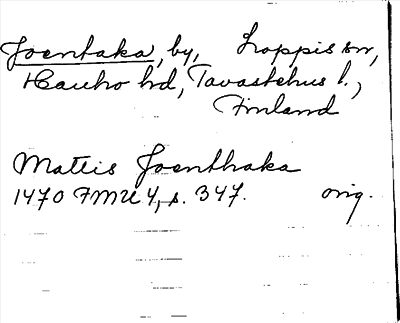 Joentaka, by, Loppis sn,
Hauho hd, Tavastehus l.,
Finland
Mattis Joenthaka
1470 FMU 4, s. 347. orig.